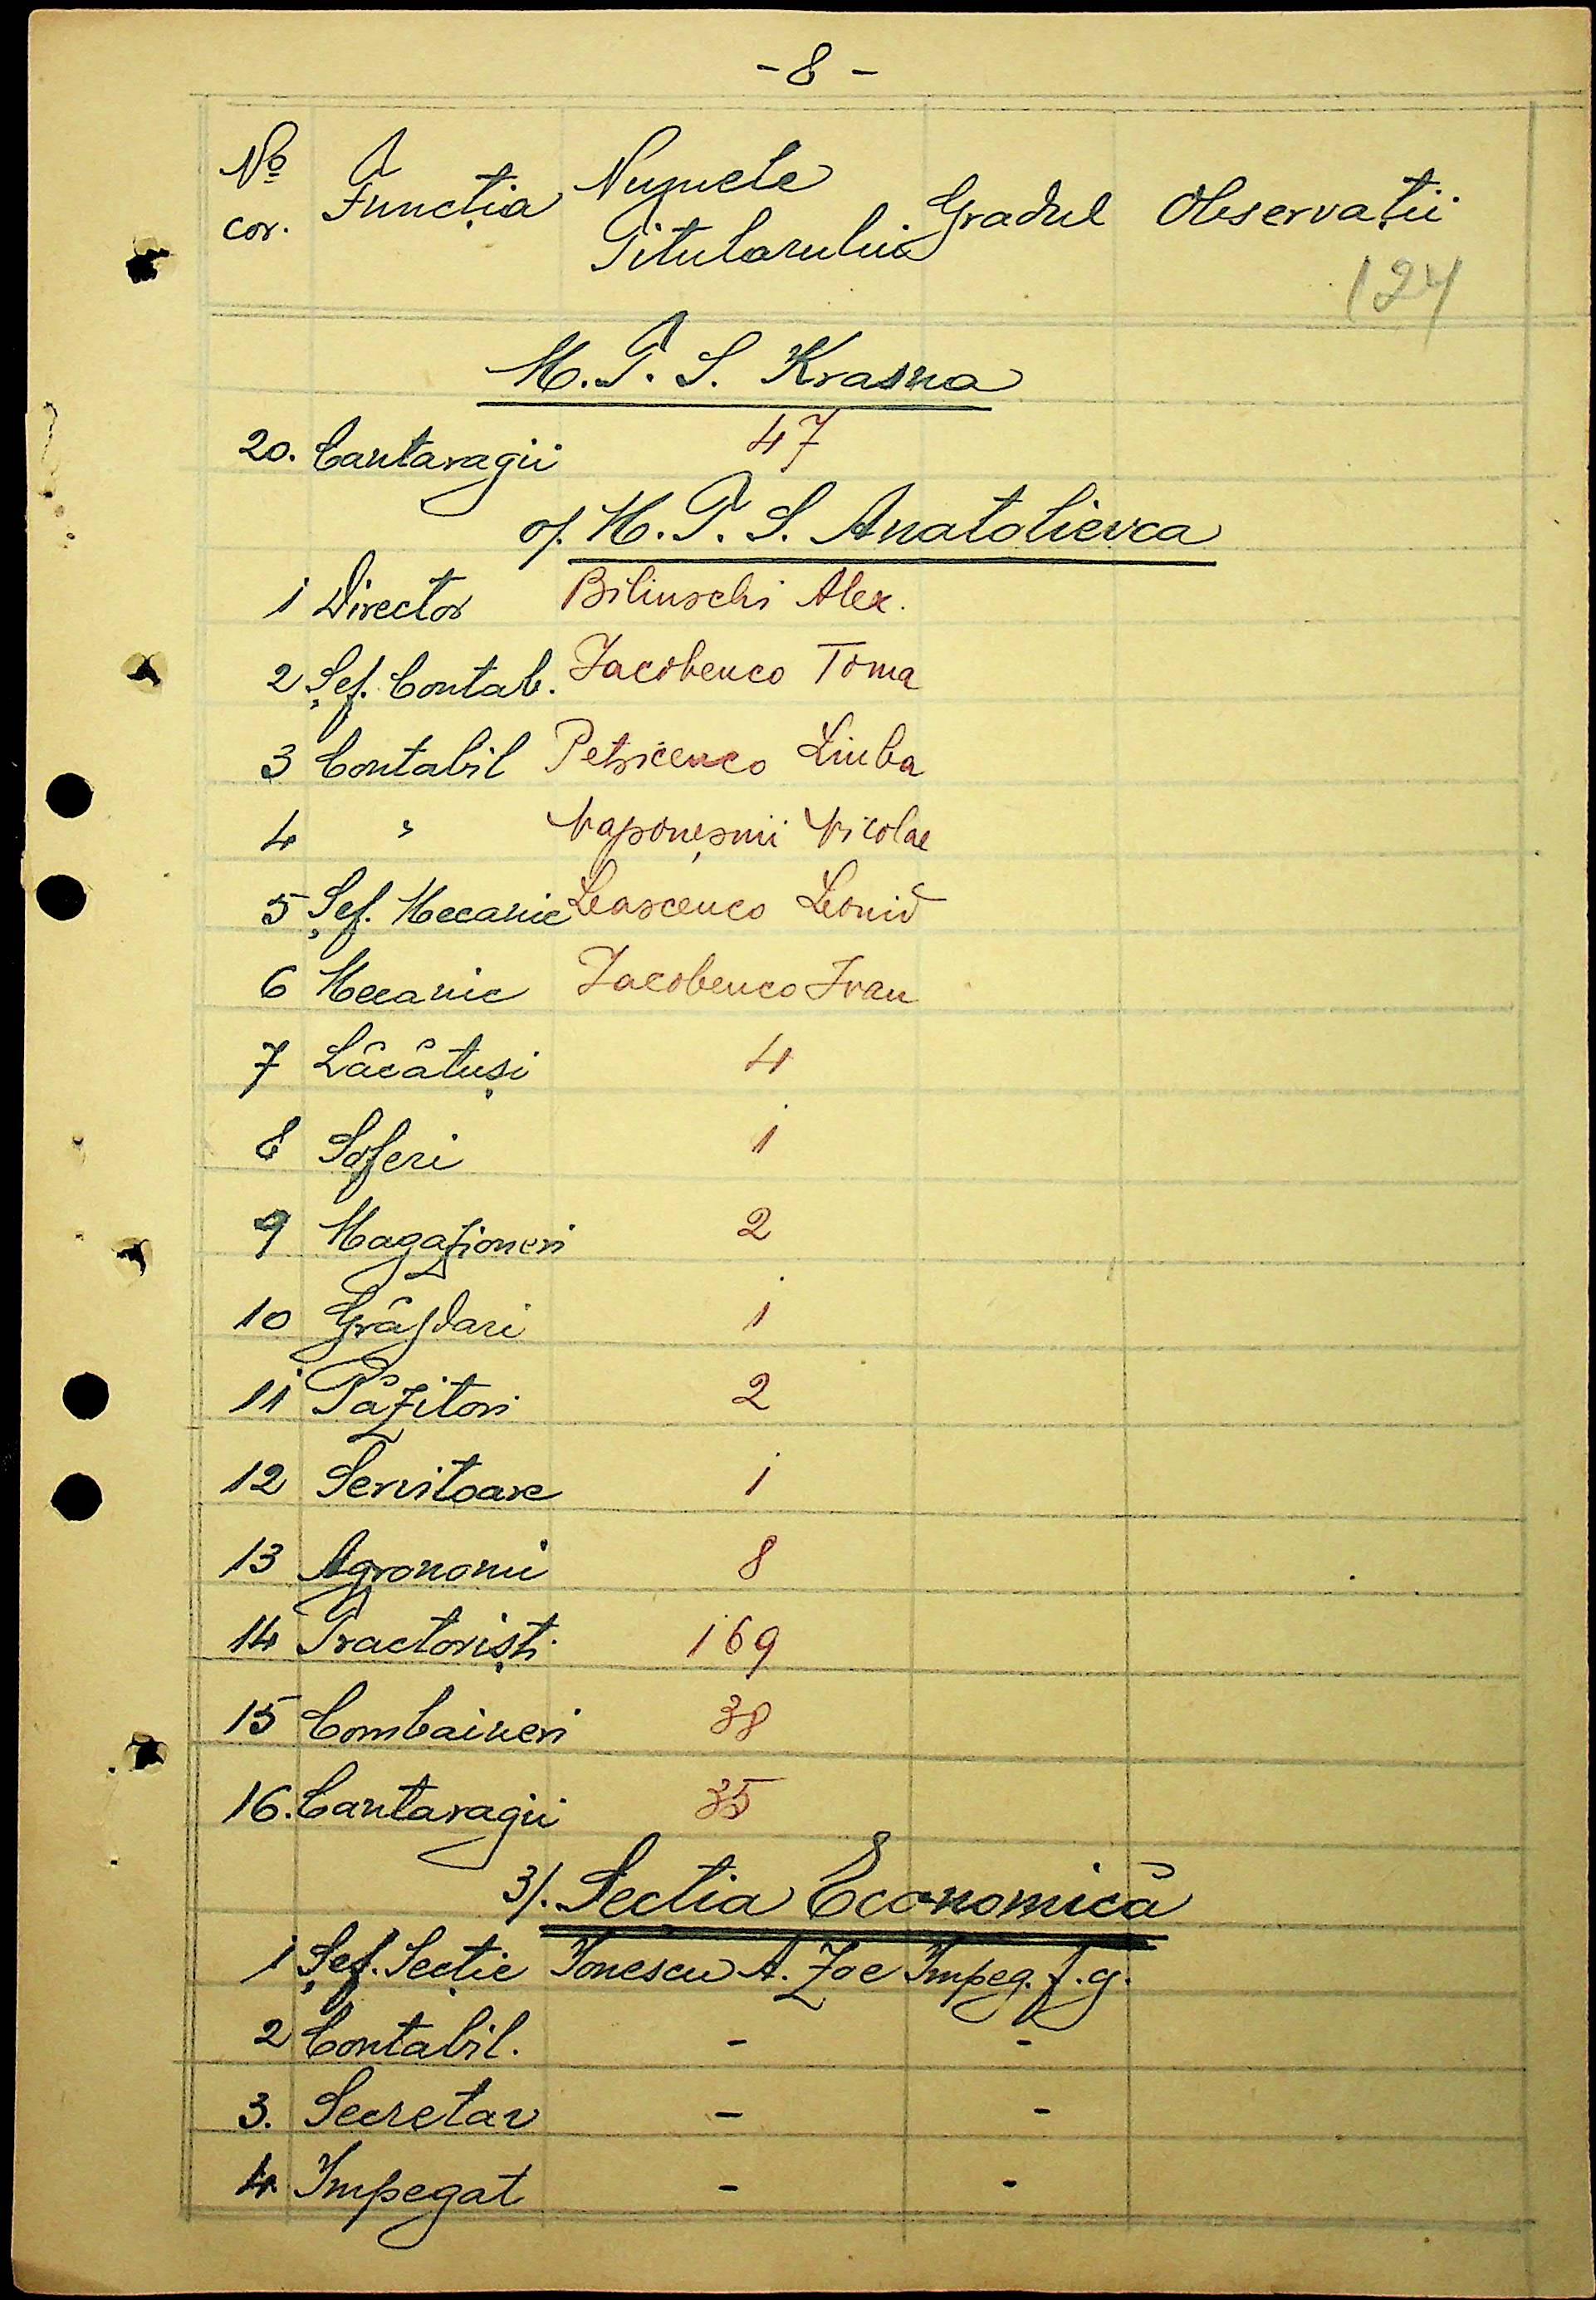 - 8 -
No cor. Funcția Numele Titularului Gradul Observații
124
M.T.S. Krasna
20. Cantaragii 47
M.T.S. Anatolievca
1 Director Bilinschi Alex.
2 Șef. Contab. Iacobenco Toma
3 Contabil Petricenco Liuba
4 " Nicolae
5 Șef. Mecanic Leascenco Leonid
6 Mecanic Iacobenco Ivan
7 Lâcâtuși 4
8 Soferi 1
9 Magazioneri 2
10 Grâjdari 1
11 Pâzitori 2
12 Servitoare 1
13 Agronomi 8
14 Tractoriști 169
15 Combaineri 38
16. Cantaragii 35
3/. Sectia Economicâ
1 Șef. Secție Ionescu A. Zoe Impeg. f.g.
2 Contabil. - -
3. Secretar - -
4. Impegat - -